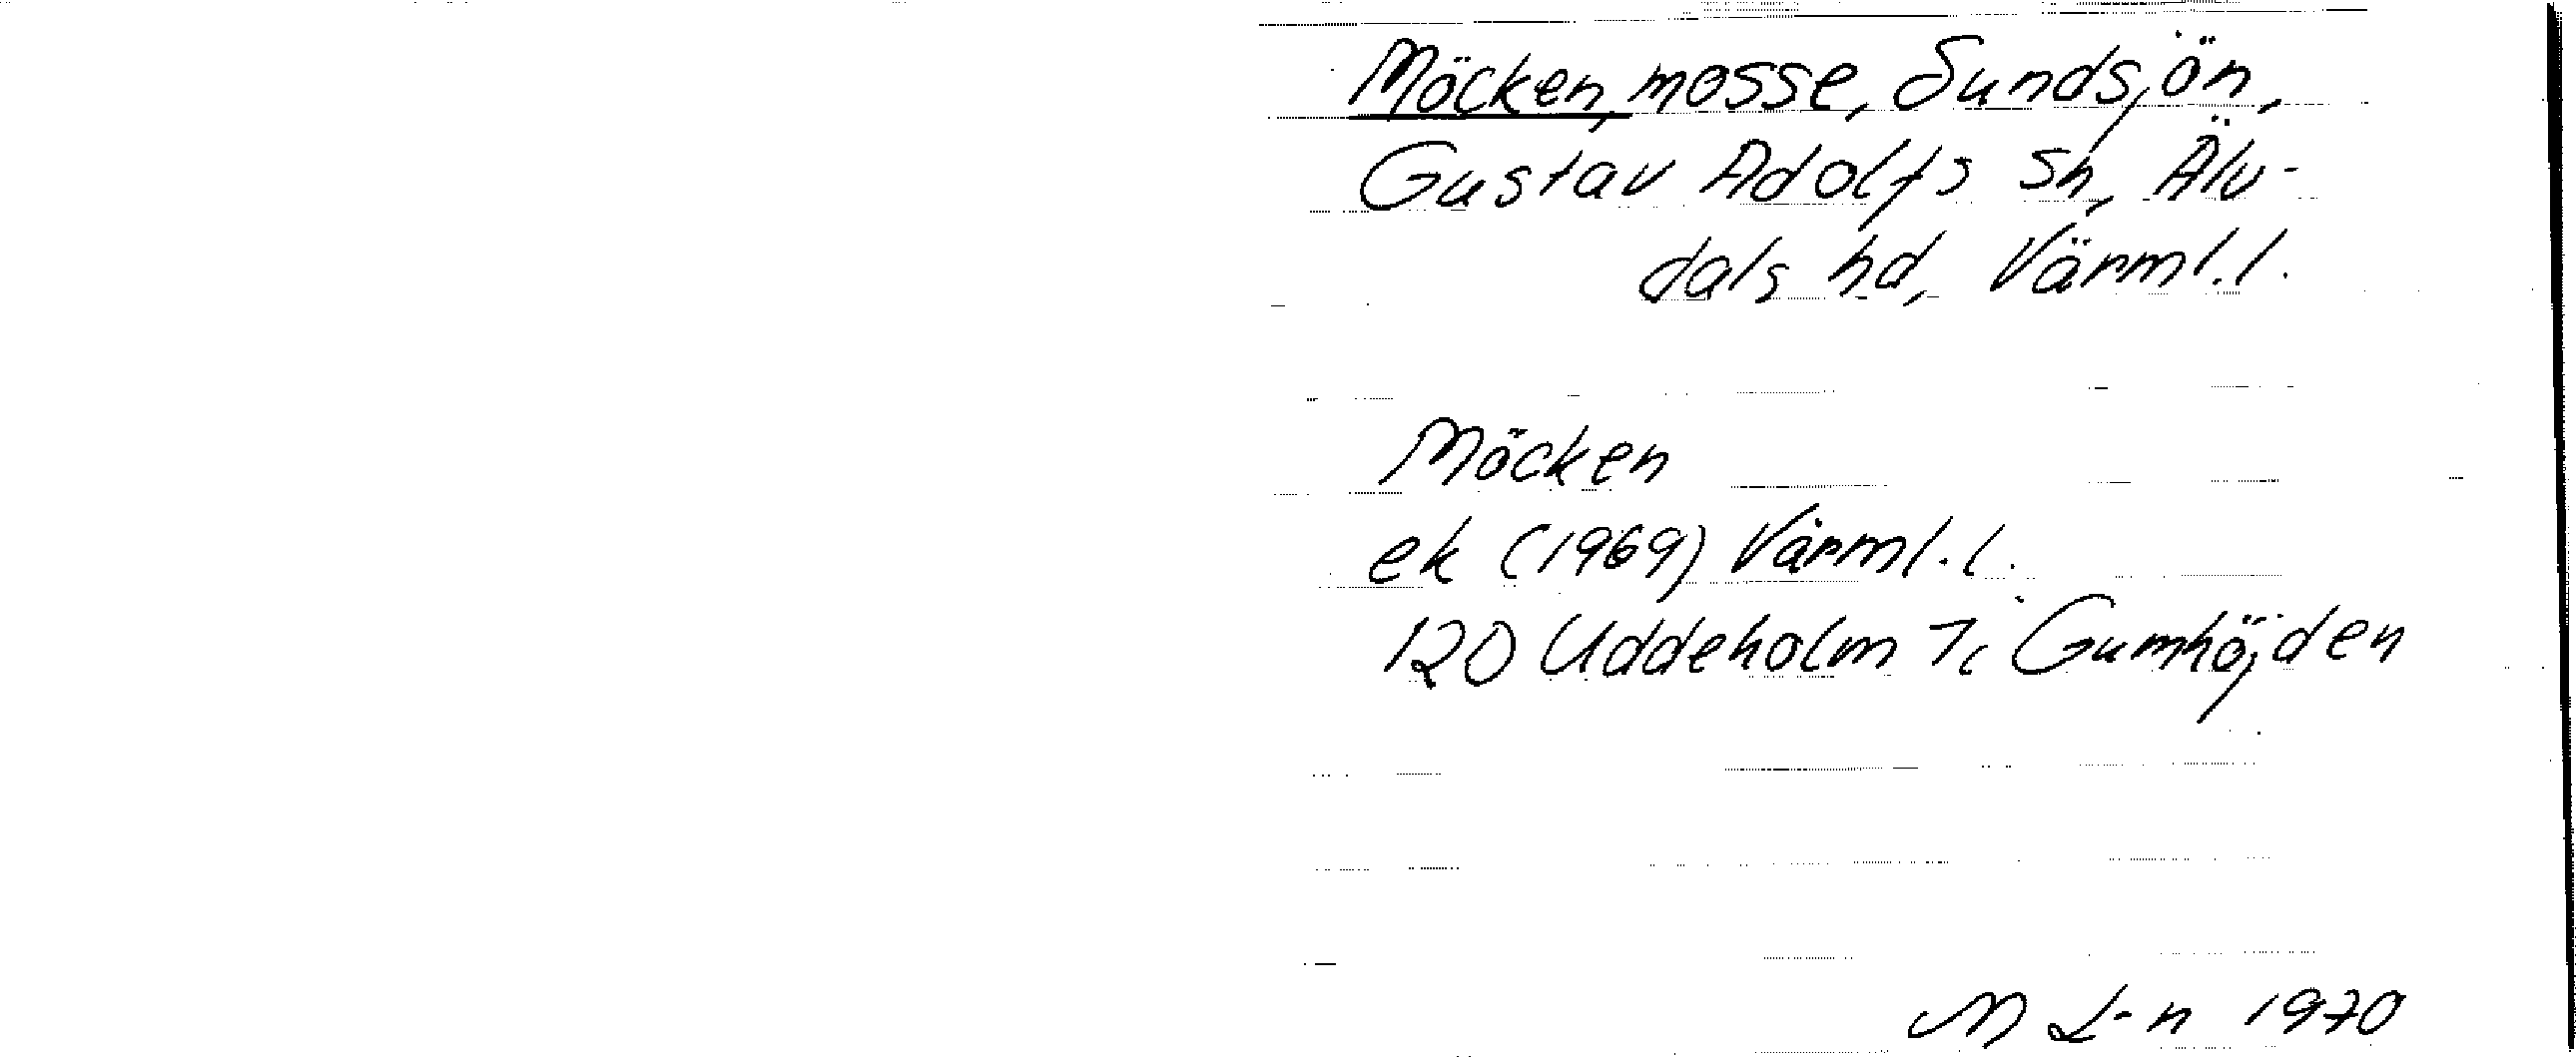 Möcken, mosse, Sundsjön,
Gustav Adolfs sn, Älv-
dals hd, Värml. l.
Möcken
ek (1969) Värml. l.
120 Uddeholm 7c Gumhöjden
M L-n 1970